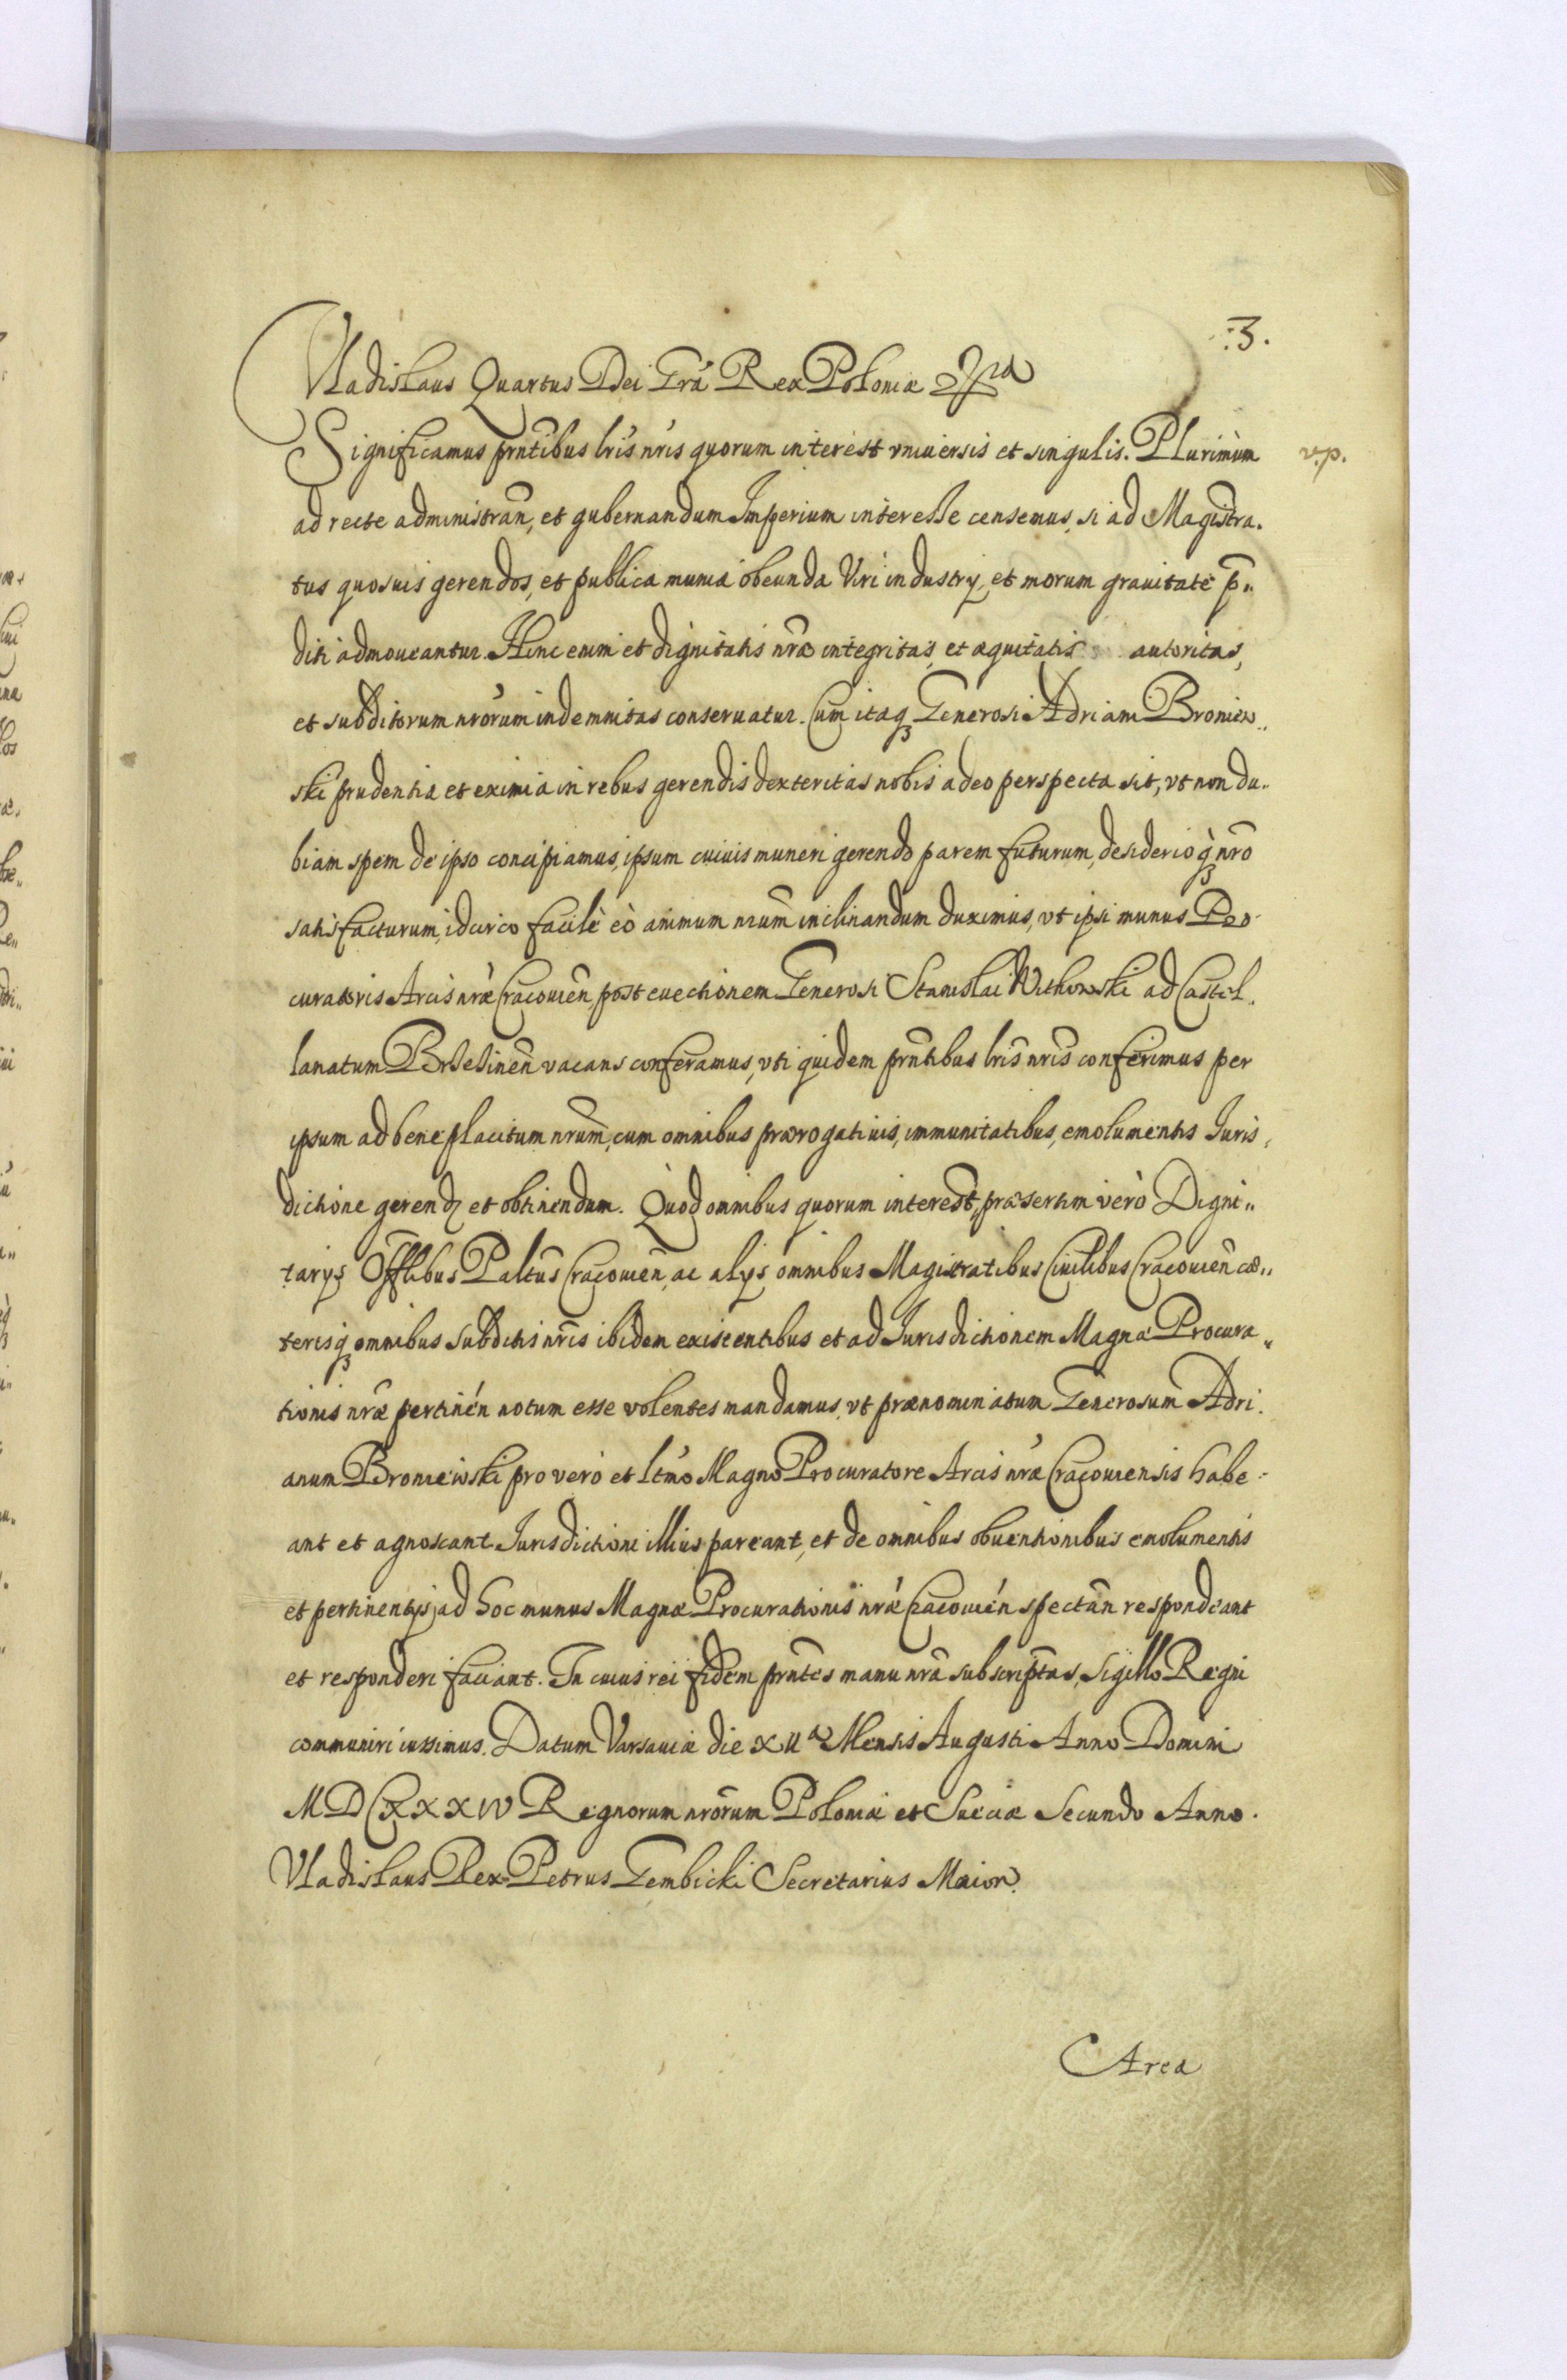 .3.
Vladislaus Quartus Dei Grã Rex Poloniæ
Significamus prñtibus lris nris quorum interest vniuersis et singulis. Plurimùm v.p.
ad recte administrañ, et gubernandum Imperium interesse censemus, si ad Magistra.
tus quosuis gerendos, et publica munia obeunda Viri industry, et morum grauitate p̃„
diti admoueantur. Hinc enim et dignitatis nrã integritas, et æquitatis autoritas,
et subditorum nrorum indemnitas conseruatur. Cum itaq3 Generosi Adriani Broniew„
ski prudentia et eximia in rebus gerendis dexteritas nobis adeo perspecta sit, vt non du„
biam spem de ipso concipiamus, ipsum cuiuis muneri gerendo parem futurum, desiderioq3 nrõ
satisfacturum, idcirco facilè eò animum nrũm inclinandum duximus, vt ipsi munus Pro-
curatoris Arcis nræ Cracouien, post euectionem Generosi Stanislai Witkowski ad Castel.
lanatum Brzesinen vacans conferamus, vti quidem prñtibus lris nris conferimus per
ipsum ad beneplacitum nrũm, cum omnibus prærogatiuis, immunitatibus, emolumentis Juris,
dictione gerend et obtinendum. Quod omnibus quorum interest, præsertim verò Digni„
tarys Offlibus Paltus Cracouien, ac alys omnibus Magistratibus Ciuilibus Cracouien cæ„
terisq3 omnibus subditis nris ibidem existentibus et ad Jurisdictionem Magnæ Procura„
tionis nræ pertinén notum esse volentes mandamus, vt prænominatum Generosum Adri.
anum Broniewski pro vero et ltmo Magno Procuratore Arcis nræ Cracouiensis habe-
ant et agnoscant Jurisdictioni illius pareant, et de omnibus obuentionibus emolumentis
et pertinentys, ad hoc munus Magnæ Procurationis nræ Cracouién spectañ respondeant
et responderi faciant. In cuius rei fidem prñtes manu nrã subscriptas, Sigillo Regni
communiri iussimus. Datum Varsauiæ die XIIa Mensis Augusti Anno Domini
MDCXXXIV Regnorum nrorum Poloniæ et Sueciæ Secundo Anno.
Vladislaus Rex Petrus Gembicki Secretarius Maior.
Area